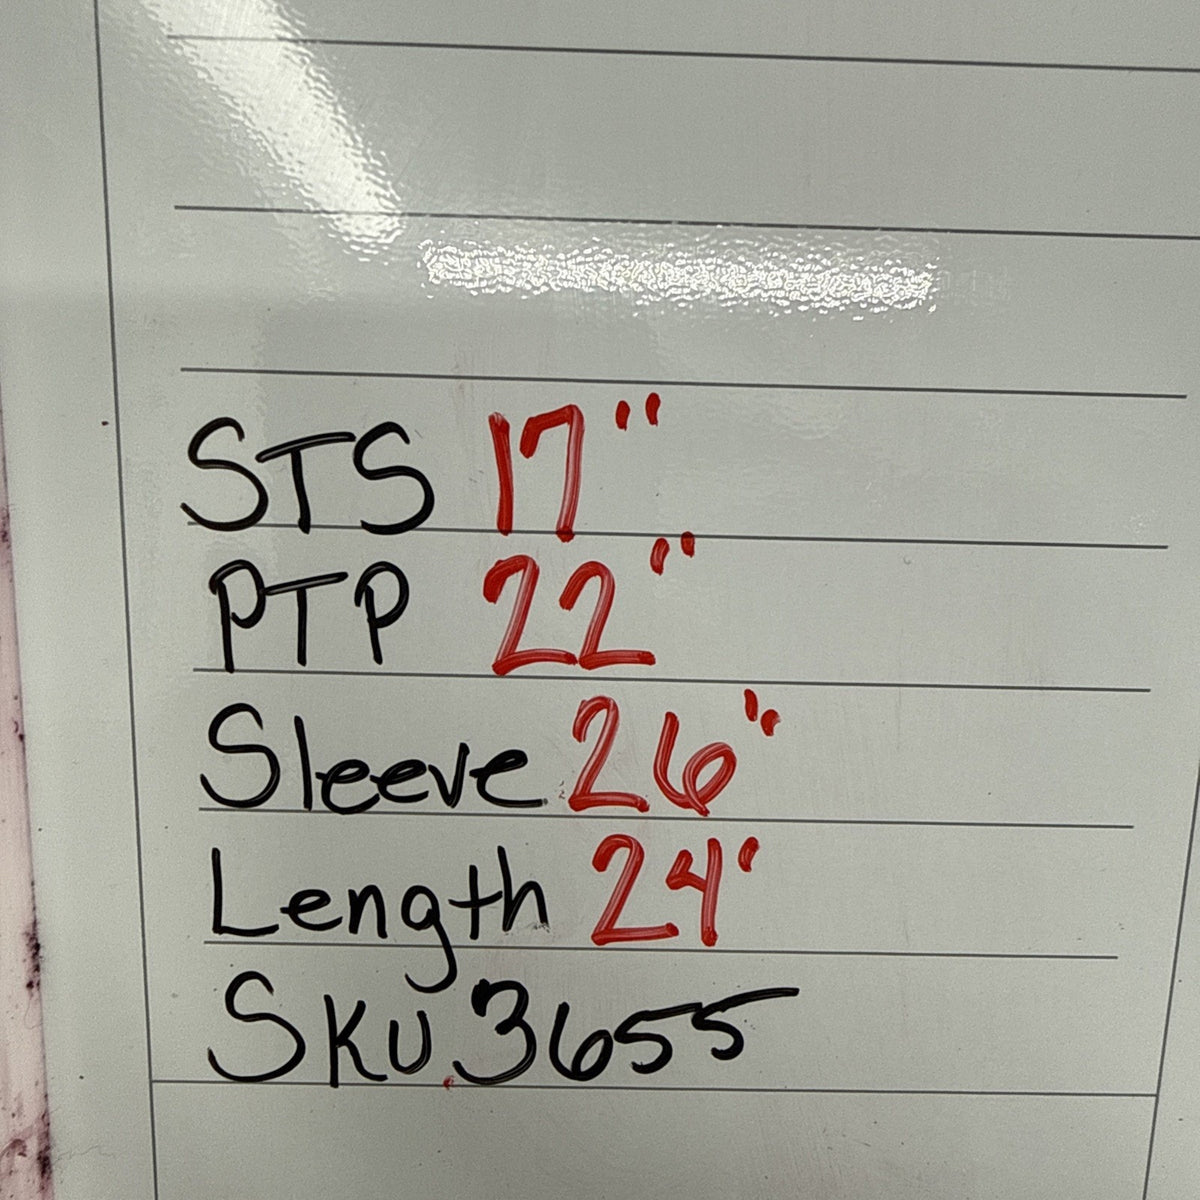 STS 17"
PTP 22"
Sleeve 26"
Length 24'
SKU 3655